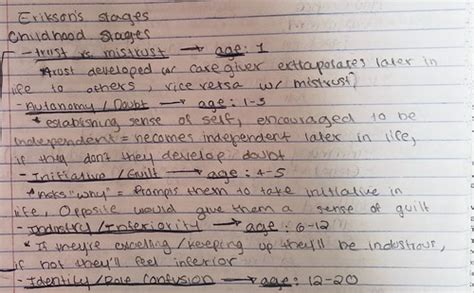 Erikson's stages
Childhood stages
- trust vs mistrust → age: 1
*trust developed w/ caregiver extrapolates later in
life to others, vice versa w/ mistrust
- Autonomy / Doubt → age: 1-3
* establishing sense of self, encouraged to be
independent = becomes independent later in life,
if they don't they develop doubt
- Initiative / Guilt → age: 4-5
*asks "why" = prompts them to take initiative in
life, Opposite would give them a sense of guilt
- Industry / Inferiority → age: 6-12
* If they're excelling / keeping up they'll be industrous,
if not they'll feel inferior
- Identity / Role Confusion → age: 12-20